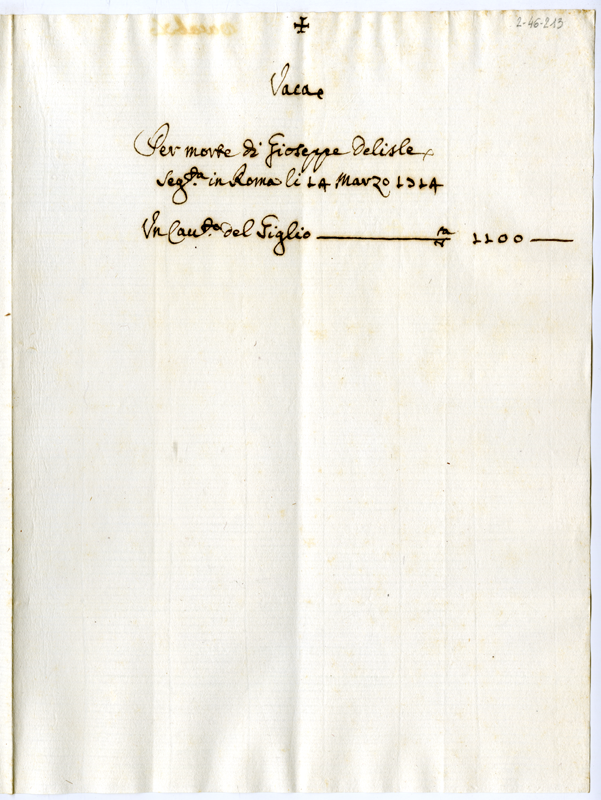 2-46-213
✠
Vaca
Per morte di Gioseppe Delisle
seg.ta in Roma li 14 Marzo 1714
Un Cau.to del Giglio ——— 1100 —